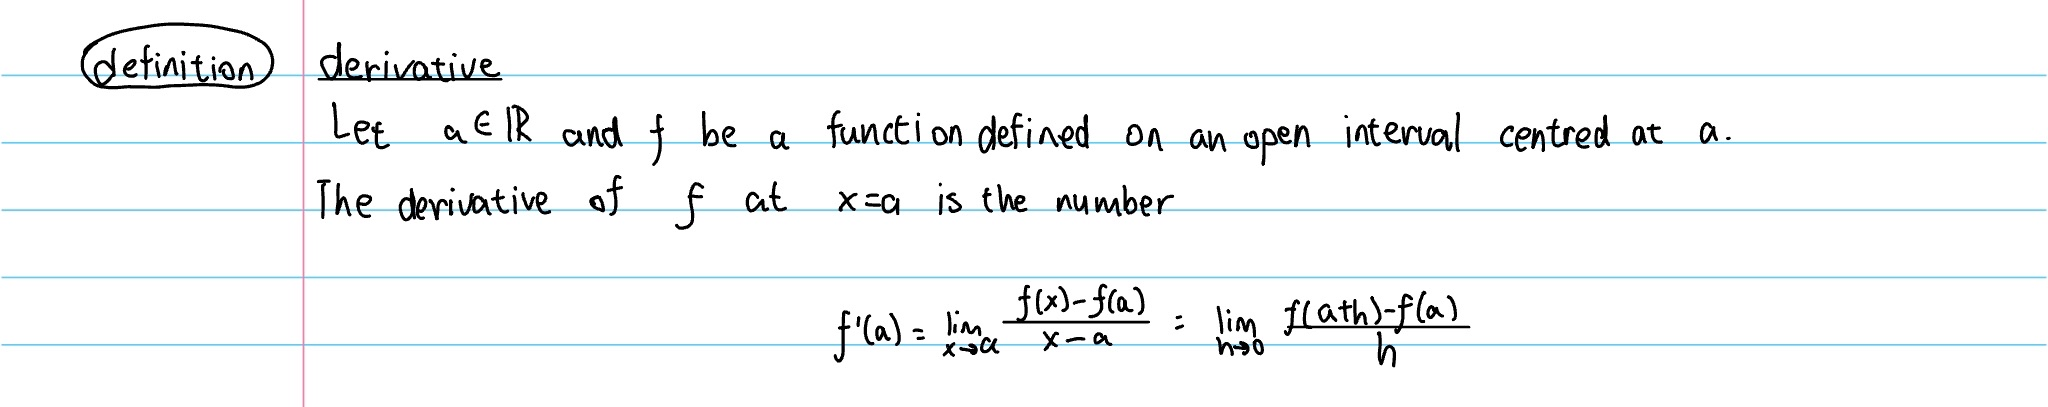 definition derivative
Let a ∈ ℝ and f be a function defined on an open interval centred at a.
The derivative of f at x=a is the number
f'(a) = lim_{x→a} \frac{f(x)-f(a)}{x-a} = lim_{h→0} \frac{f(a+h)-f(a)}{h}